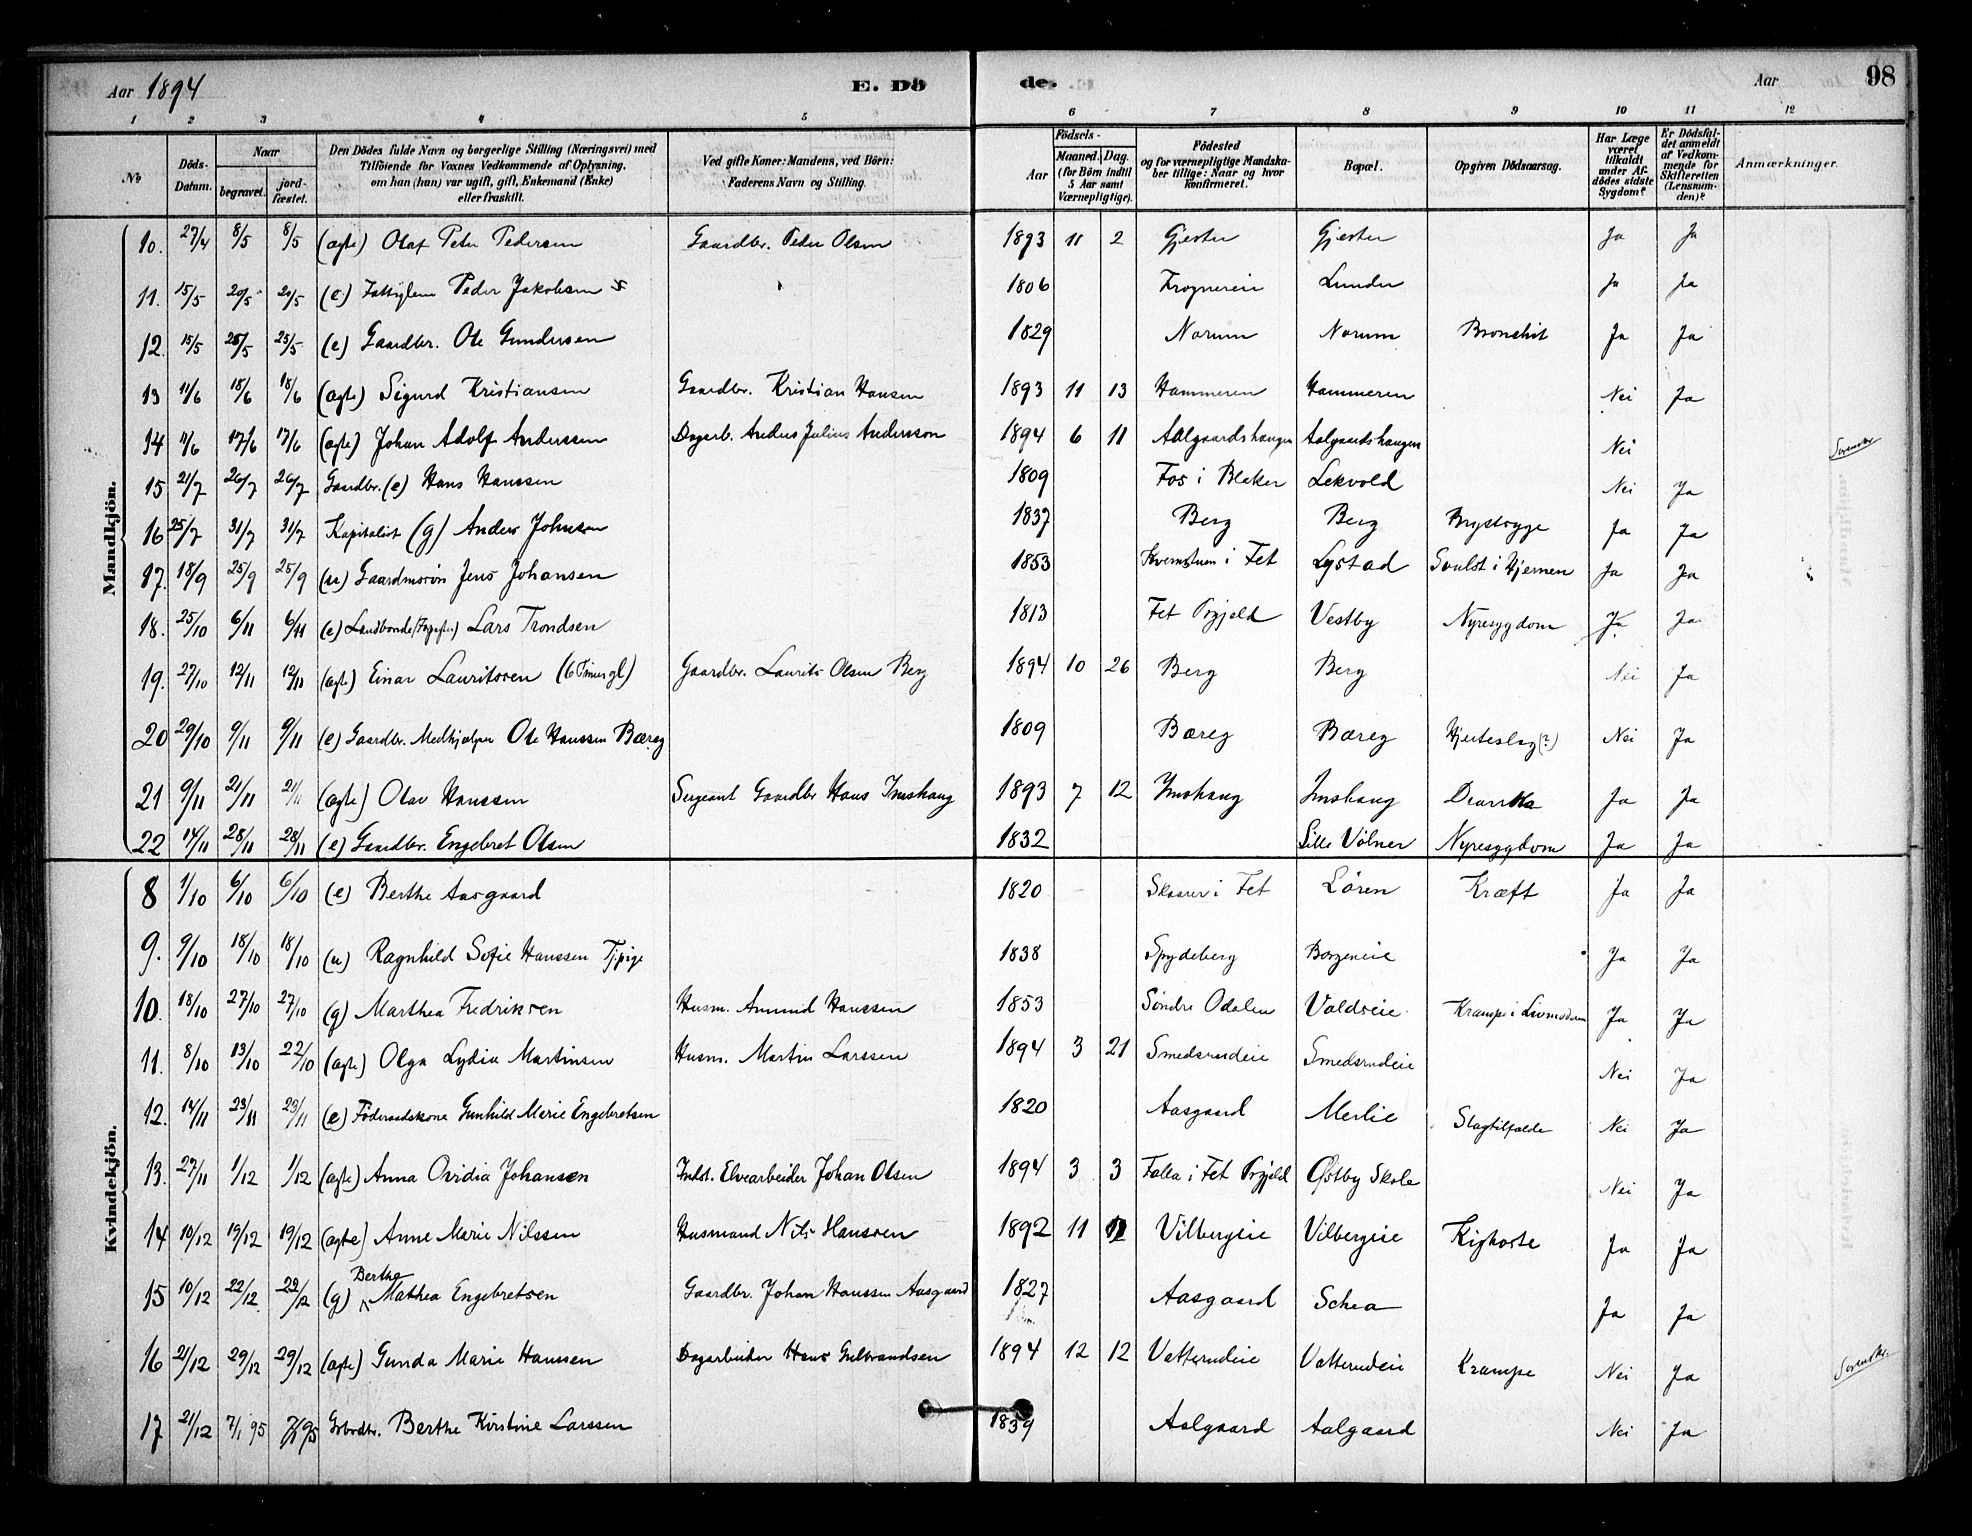 Aar 1894 E. Dö de. Aar 98
1 2 3 4 5 6 7 8 9 10 11 12
No Döds-Datum. Naar begravet. jordfæstet. Den Dödes fulde Navn og borgerlige Stilling (Næringsvei) med Tilföiende for Voxnes Vedkommende af Oplysning, om han (hun) var ugift, gift, Enkemand (Enke) eller fraskilt. Ved gifte Koner: Mandens, ved Börn: Faderens Navn og Stilling. Födsels- Aar Maaned. Dag. (for Börn indtil 5 Aar samt Værnepligtige). Födested og for værnepligtige Mandskaber tillige: Naar og hvor konfirmeret. Bopæl. Opgiven Dödsaarsag. Har Læge været tilkaldt under Afdödes sidste Sygdom? Er Dödsfaldet anmeldt af Vedkommende for Skifteretten (Lensmanden)? Anmærkninger.
Mandkjön.
10. 27/4 8/5 8/5 (ægte) Olaf Peter Pedersen Gaardbr. Peder Olsen 1893 11 2 Gjester Gjester Ja Ja
11. 15/5 20/5 20/5 (e) Fattiglem Peder Jakobsen 1806 Frognereie Lunder Ja Ja
12. 15/5 25/5 25/5 (e) Gaardbr. Ole Gundersen 1829 Norum Norum Bronchit Ja Ja
13 11/6 18/6 18/6 (ægte) Sigurd Kristiansen Gaardbr. Kristian Hansen 1893 11 13 Hammeren Hammeren Nei Ja
14 11/6 17/6 17/6 (ægte) Johan Adolf Anderssen Dagarb. Anders Julius Andersson 1894 6 11 Aalgaardshaugen Aalgaardshaugen Nei Svensk
15 21/7 26/7 26/7 Gaardbr. (e) Hans Hanssen 1809 Fos i Blaker Lekvold Nei Ja
16 25/7 31/7 31/7 Kapitalist (g) Anders Johnsen 1837 Berg Berg Brystsyge Ja Ja
17. 18/9 25/9 25/9 (u) Gaardmssøn Jens Johansen 1853 Kvernstuen i Fet Lystad Svulst i Hjernen Ja Ja
18. 25/10 6/11 6/11 (e) Landbonde Lars Trondsen 1813 Fet Prgjeld Vestby Nyresygdom Ja Ja
19. 27/10 12/11 12/11 (ægte) Einar Lauritsen (6 Timer gl) Gaardbr. Laurits Olsen Berg 1894 10 26 Berg Berg Nei Ja
20 29/10 9/11 9/11 (e) Gaardbr. Medhjælper Ole Hanssen Bæreg 1809 Bæreg Bæreg Hjerteslag (?) Nei Ja
21 9/11 21/11 21/11 (ægte) Olav Hanssen Sergeant Gaardbr Hans Imshaug 1893 7 12 Imshaug Imshaug Diarrhe Ja Ja
22 14/11 28/11 28/11 (e) Gaardbr. Engebret Olsen 1832 Lille Vølner Nyresygdom Ja Ja
Kvindekjön.
8 1/10 6/10 6/10 (e) Berthe Aasgaard 1820 Skaarer i Fet Løren Kræft Ja Ja
9. 9/10 18/10 18/10 (u) Ragnhild Sofie Hanssen Tjpige 1838 Spydeberg Borgeneie Ja Ja
10. 18/10 27/10 27/10 (g) Marthea Fredriksen Husm. Amund Hanssen 1853 Søndre Odalen Valdseie Krampe i Livmoderen Ja Ja
11. 8/10 13/10 22/10 (ægte) Olga Lydia Martinsen Husm. Martin Larssen 1894 3 21 Smedsrudeie Smedsrudeie Nei Ja
12. 14/11 23/11 23/11 (e) Föderaadskone Gunhild Marie Engebretsen 1820 Aasgaard Merlie Slagtilfælde Nei Ja
13. 27/11 1/12 1/12 (ægte) Anna Ovidia Johansen Indst. Elvearbeider Johan Olsen 1894 3 3 Falla i Fet Prgjeld Østby Skole Nei Ja
14 10/12 19/12 19/12 (ægte) Anne Marie Nilssen Husmand Nils Hanssen 1892 11 12 Vilbergeie Vilbergeie Kighoste Ja Ja
15 10/12 22/12 22/12 (g) Berthe Mathea Engebretsen Gaardbr. Johan Hanssen Aasgaard 1827 Aasgaard Schea Ja Ja
16 21/12 29/12 29/12 (ægte) Gunda Marie Hanssen Dagarbeider Hans Gulbrandsen 1894 12 12 Vatterudeie Vatterudeie Krampe Nei Ja Svenske.
17 21/12 7/1 95 7/1 95 Berthe Kirstine Larssen 1839 Aalgaard Aalgaard Nei Ja